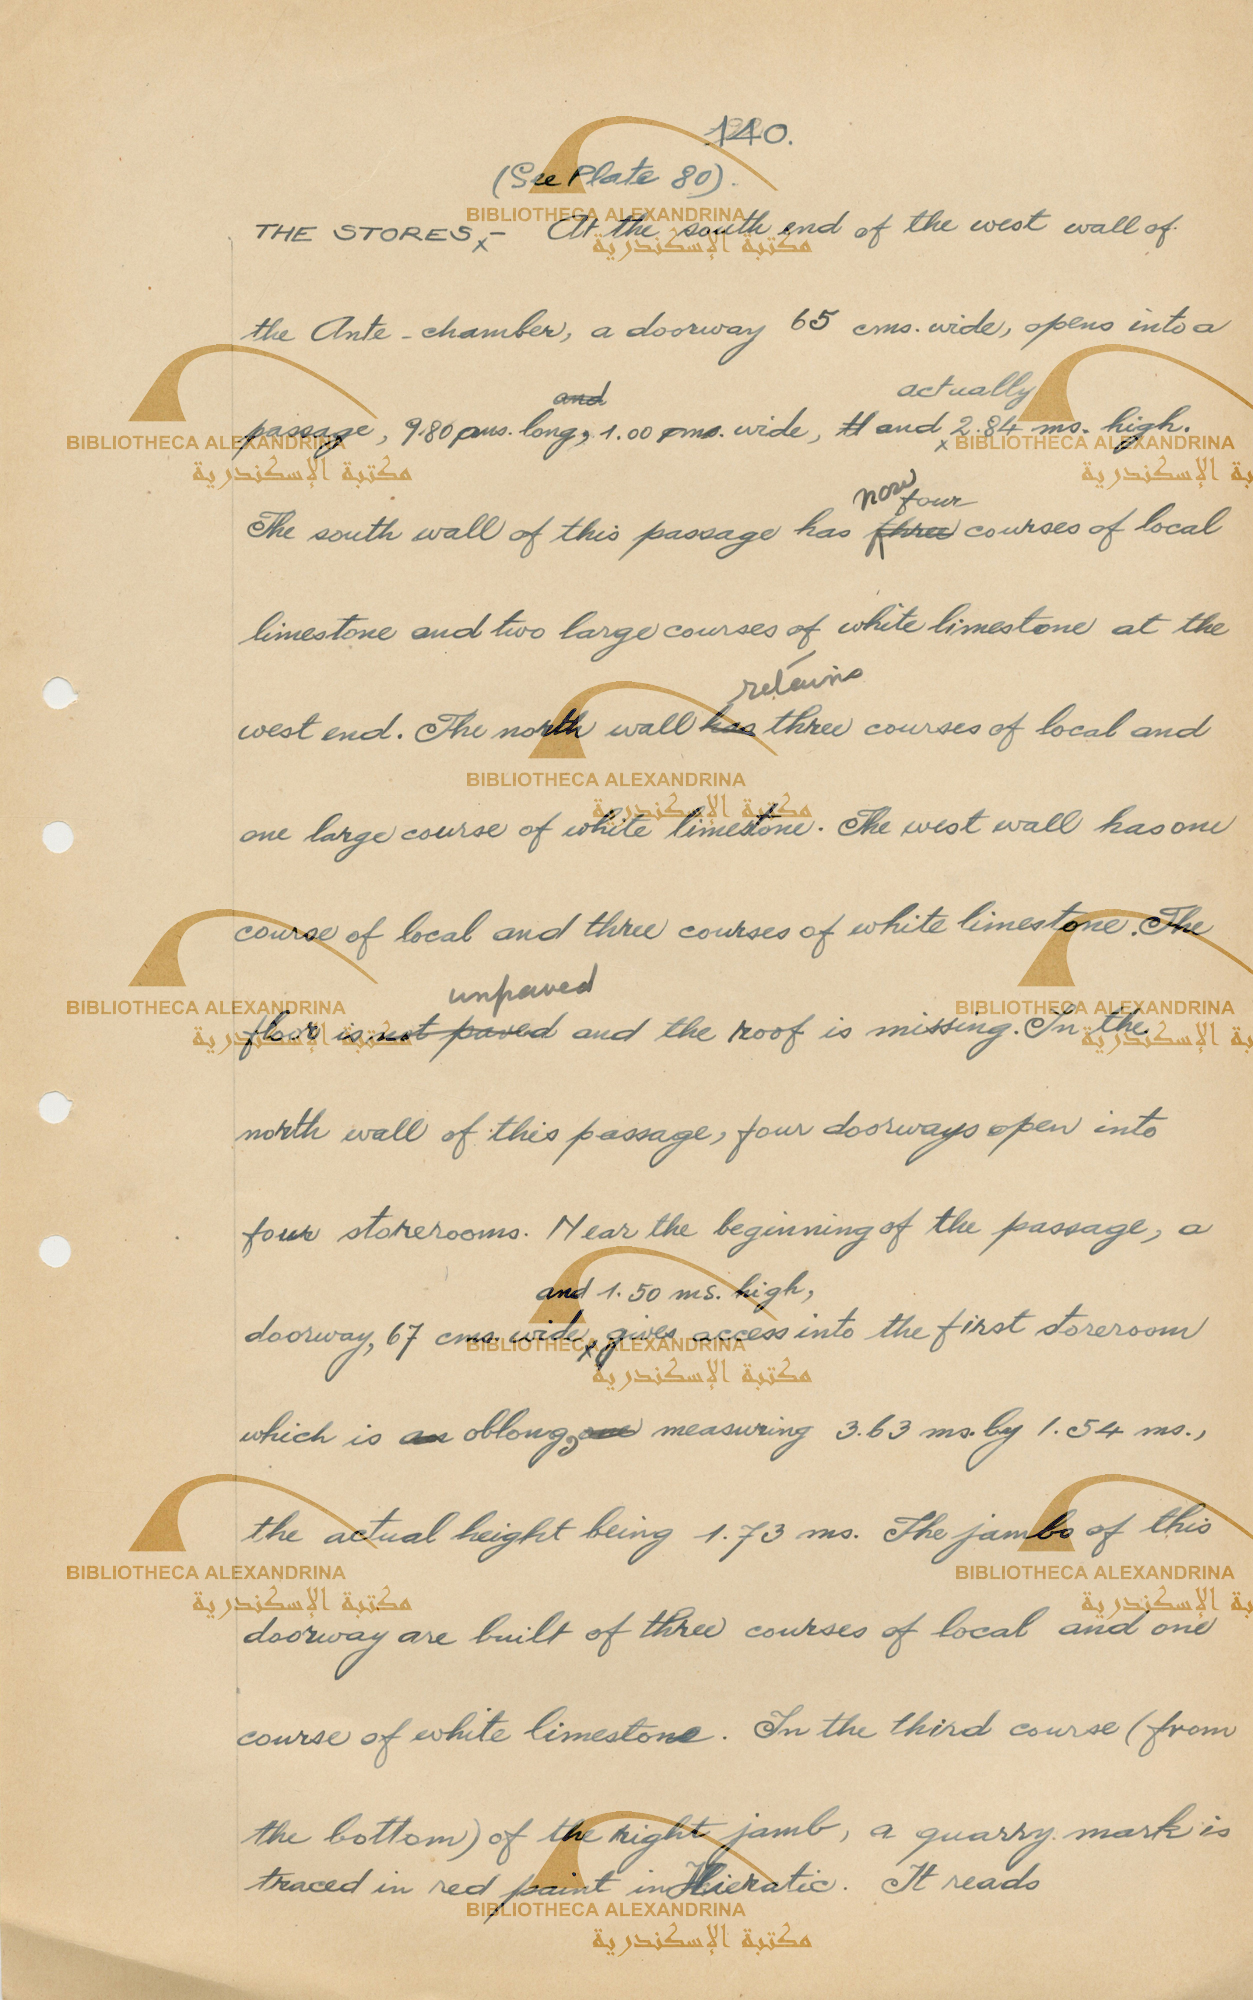 140.
(See Plate 80).
THE STORES,- At the south end of the west wall of
the Ante-chamber, a doorway 65 cms. wide, opens into a
and
actually
passage, 9.80 ms. long, 1.00 ms. wide, and 2.84 ms. high.
now four
The south wall of this passage has three courses of local
limestone and two large courses of white limestone at the
retains
west end. The north wall has three courses of local and
one large course of white limestone. The west wall has one
course of local and three courses of white limestone. The
unpaved
floor is not paved and the roof is missing. In the
north wall of this passage, four doorways open into
four storerooms. Near the beginning of the passage, a
and 1.50 ms. high,
doorway, 67 cms. wide, gives access into the first storeroom
which is an oblong, measuring 3.63 ms. by 1.54 ms.,
the actual height being 1.73 ms. The jambs of this
doorway are built of three courses of local and one
course of white limestone. In the third course (from
the bottom) of the right jamb, a quarry mark is
traced in red paint in Hieratic. It reads
BIBLIOTHECA ALEXANDRINA
مكتبة الإسكندرية